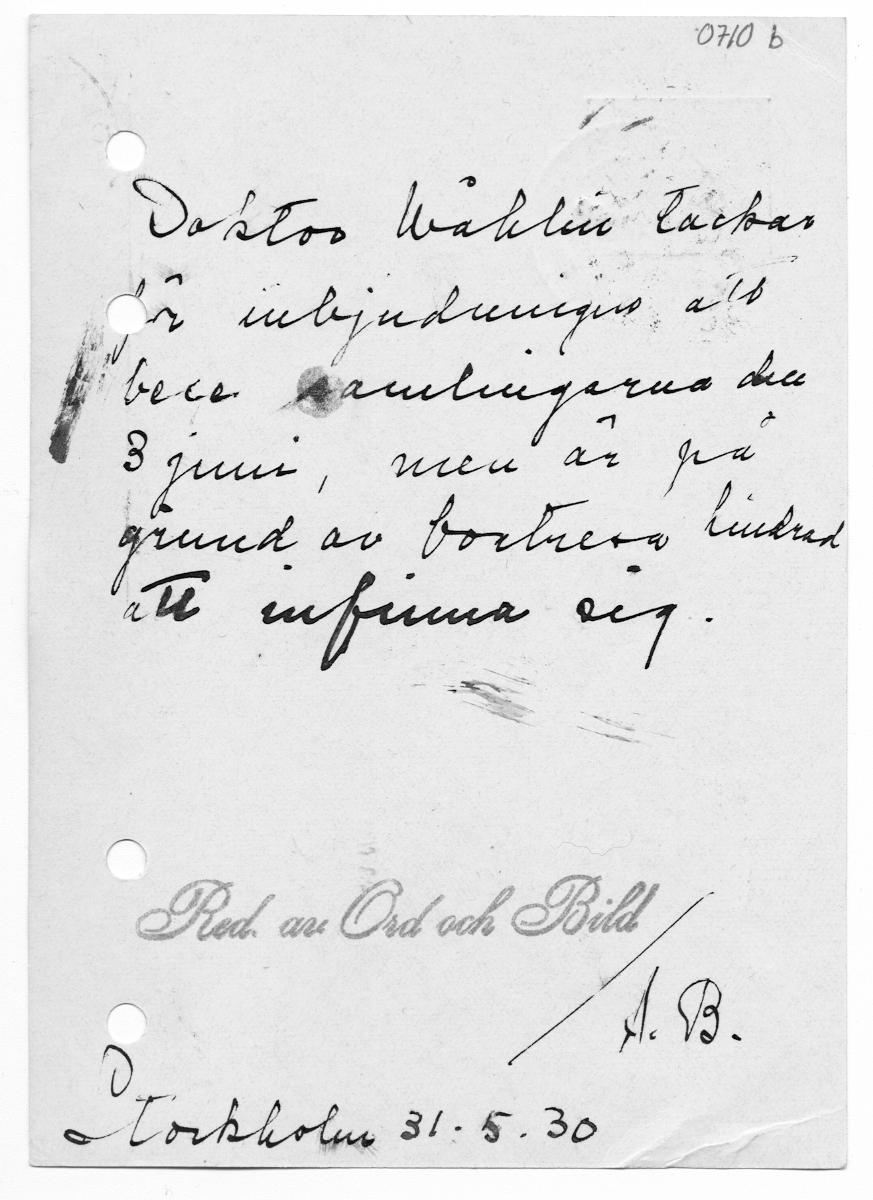 0710 b
Doktor Wåhlin tackar
för inbjudningen att
bese samlingarna den
3 juni, men är på
grund av bortresa hindrad
att infinna sig.
Red. av Ord och Bild
/ A. B.
Stockholm 31.5.30